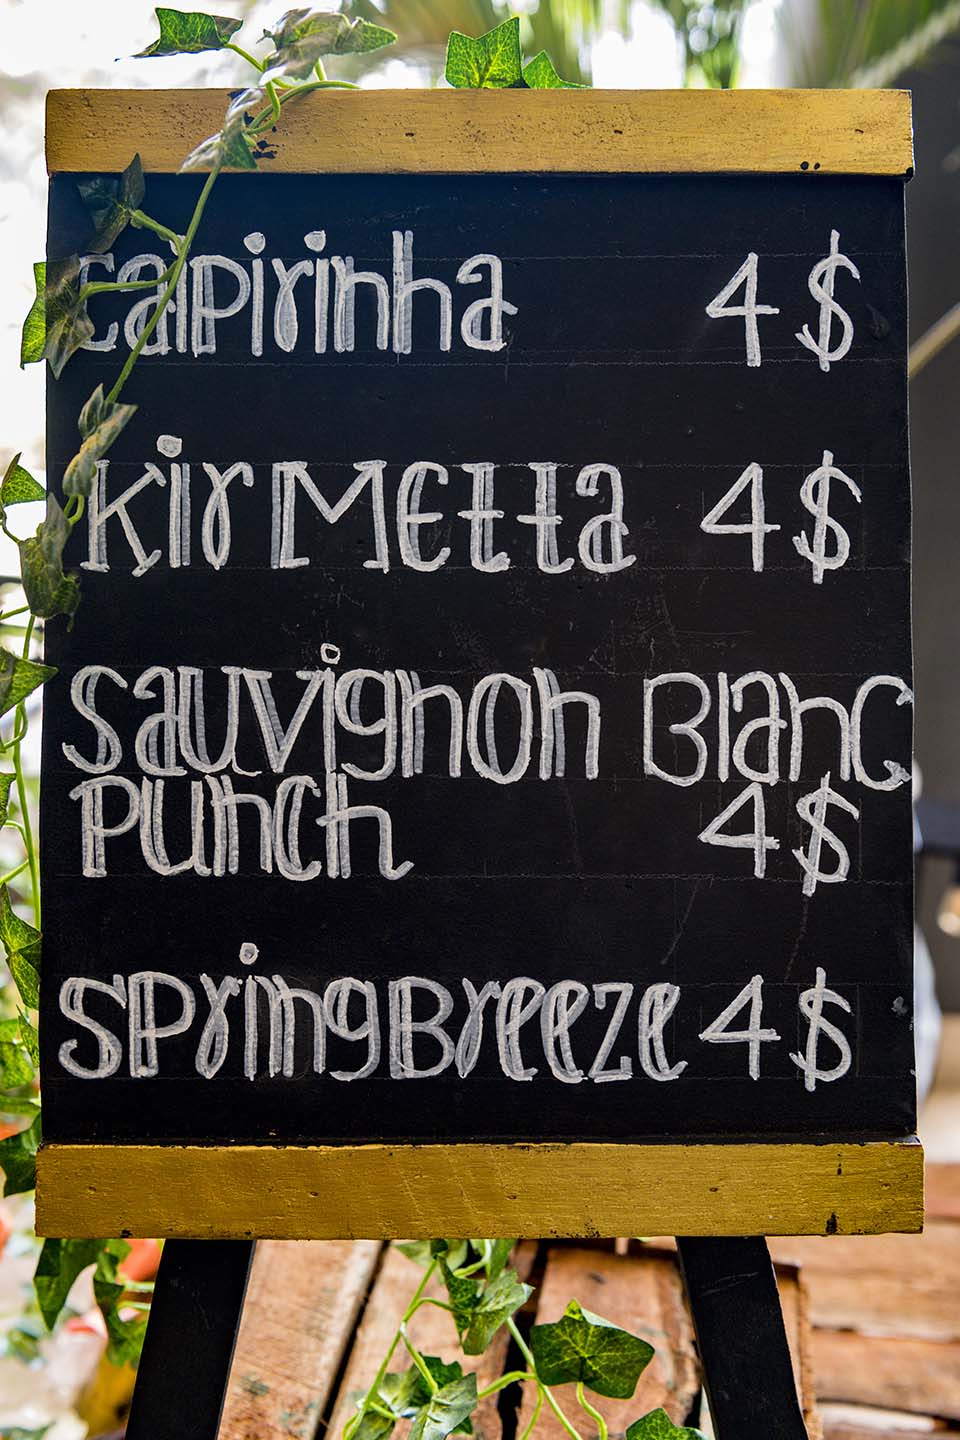 Caipirinha 4$
Kir Metta 4$
Sauvignon Blanc
Punch 4$
Spring Breeze 4$